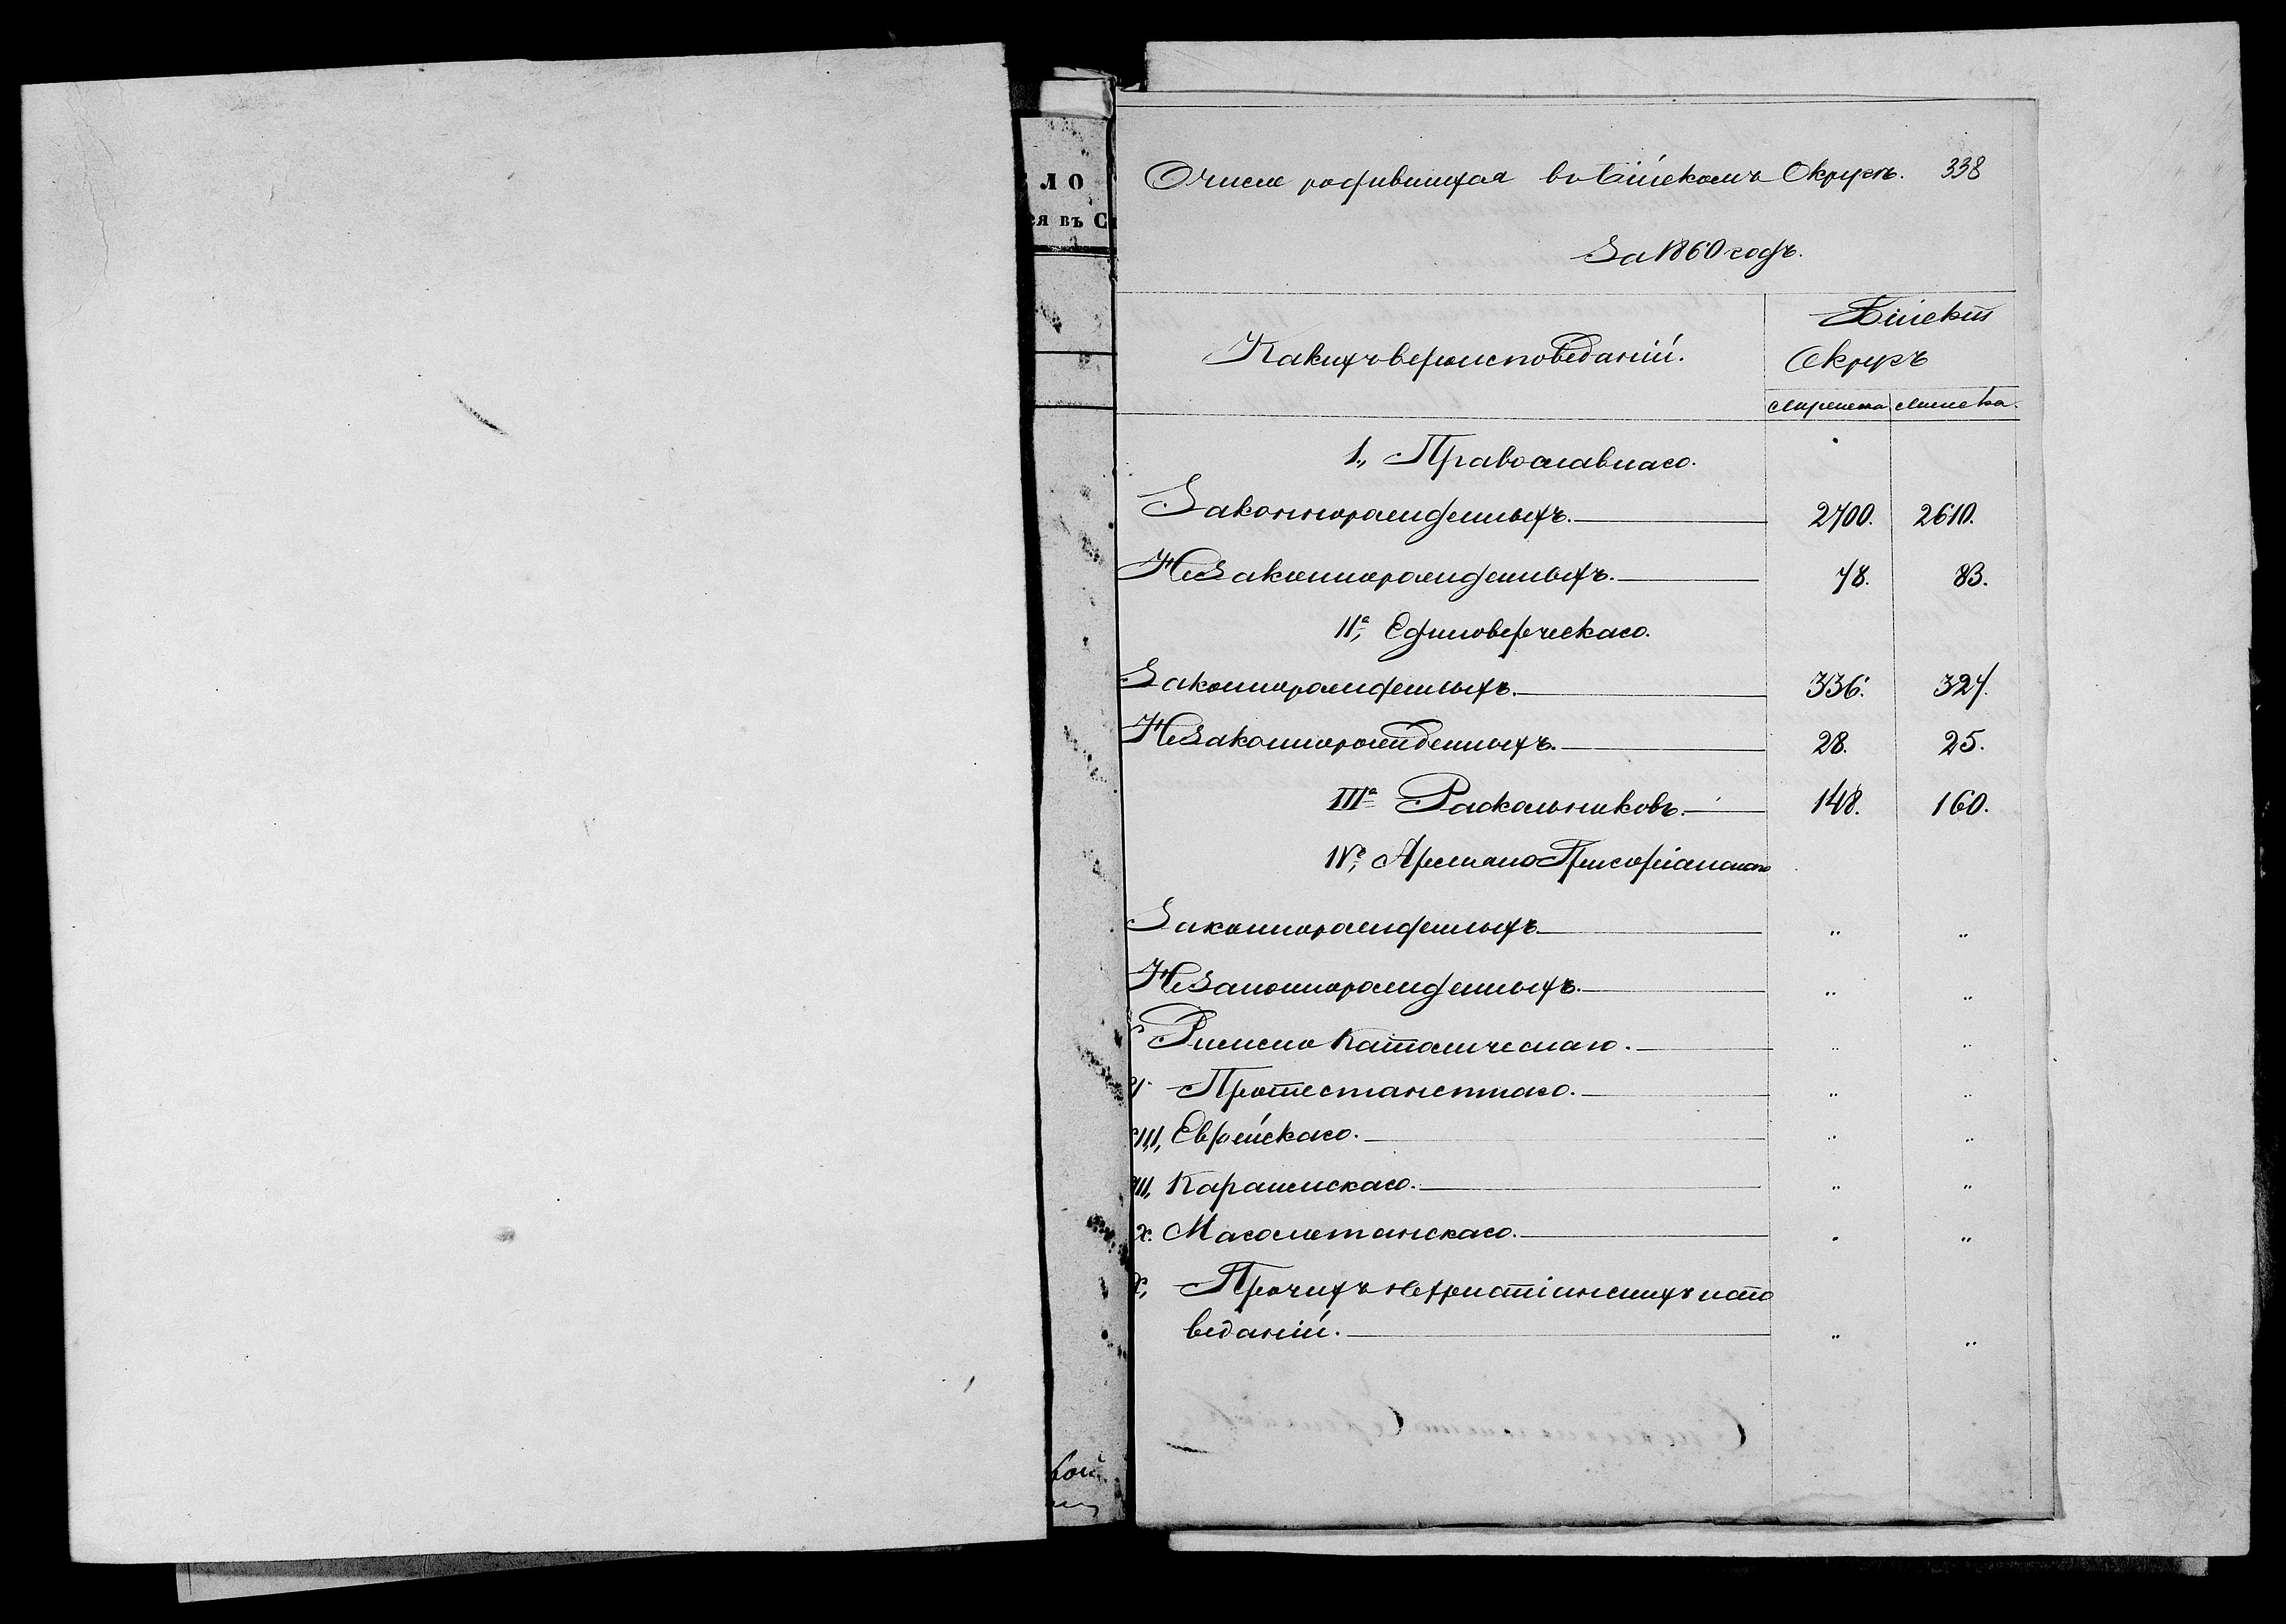 ЛО
ся въ С
О числе родившихся въ Бійскомъ Округѣ. 338
За 1860 годъ.
Какихъ вероисповеданій.
Бійскій
Округъ
мужеска
женска.
1., Православнаго.
Законнорожденныхъ. 2700. 2610.
Незаконнорожденныхъ. 78. 83.
IIе, Единоверческаго.
Законнорожденныхъ. 336. 327.
Незаконнорожденныхъ. 28. 25.
IIIе Раскольниковъ. 148. 160.
IVе, Армяно Григоріанскаго
Законнорожденныхъ " "
Незаконнорожденныхъ. " "
Римско Католическаго. " "
Протестантскаго. " "
Еврейскаго. " "
Караимскаго. " "
х. Магометанскаго. " "
х, Прочихъ нехристіанскихъ испо
веданій. " "